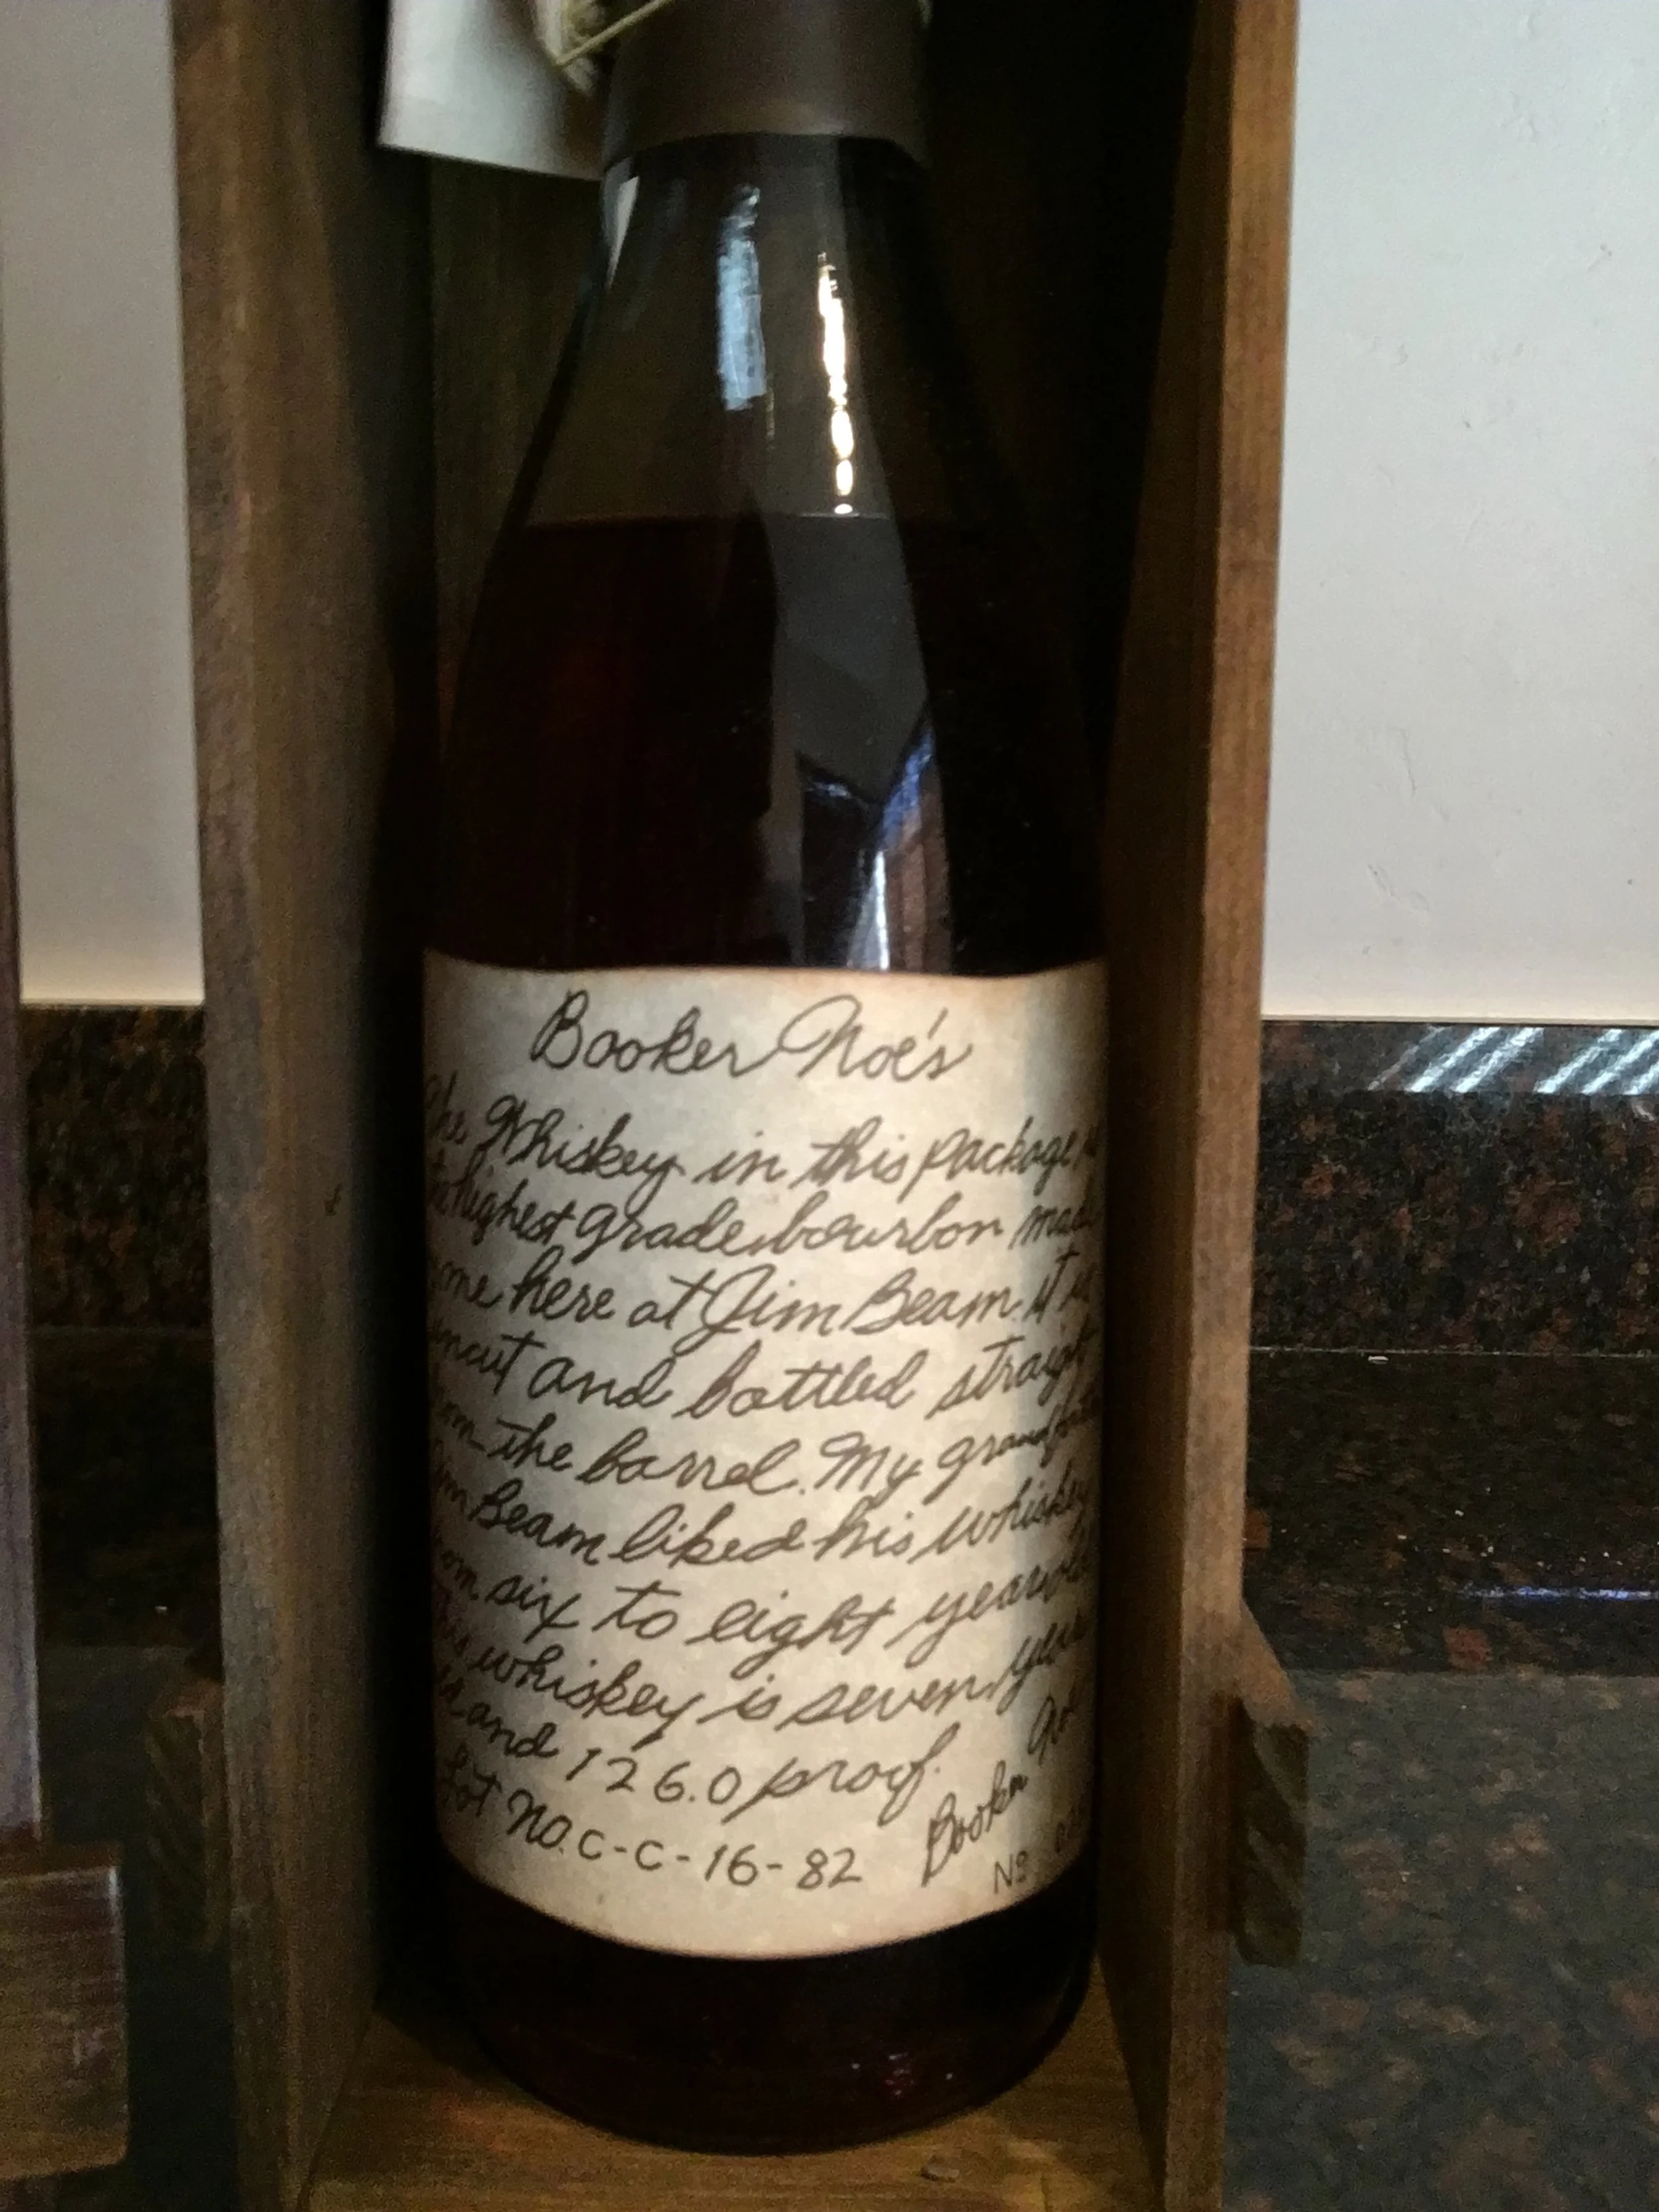 Booker Noe's
The Whiskey in this package is
the highest grade bourbon made
by me here at Jim Beam. it is
uncut and bottled straight
from the barrel. My grandfather
Jim Beam liked his whiskey
from six to eight years old
This whiskey is seven years
old and 126.0 proof.
Booker Noe
Lot NO. C-C-16-82
Nº